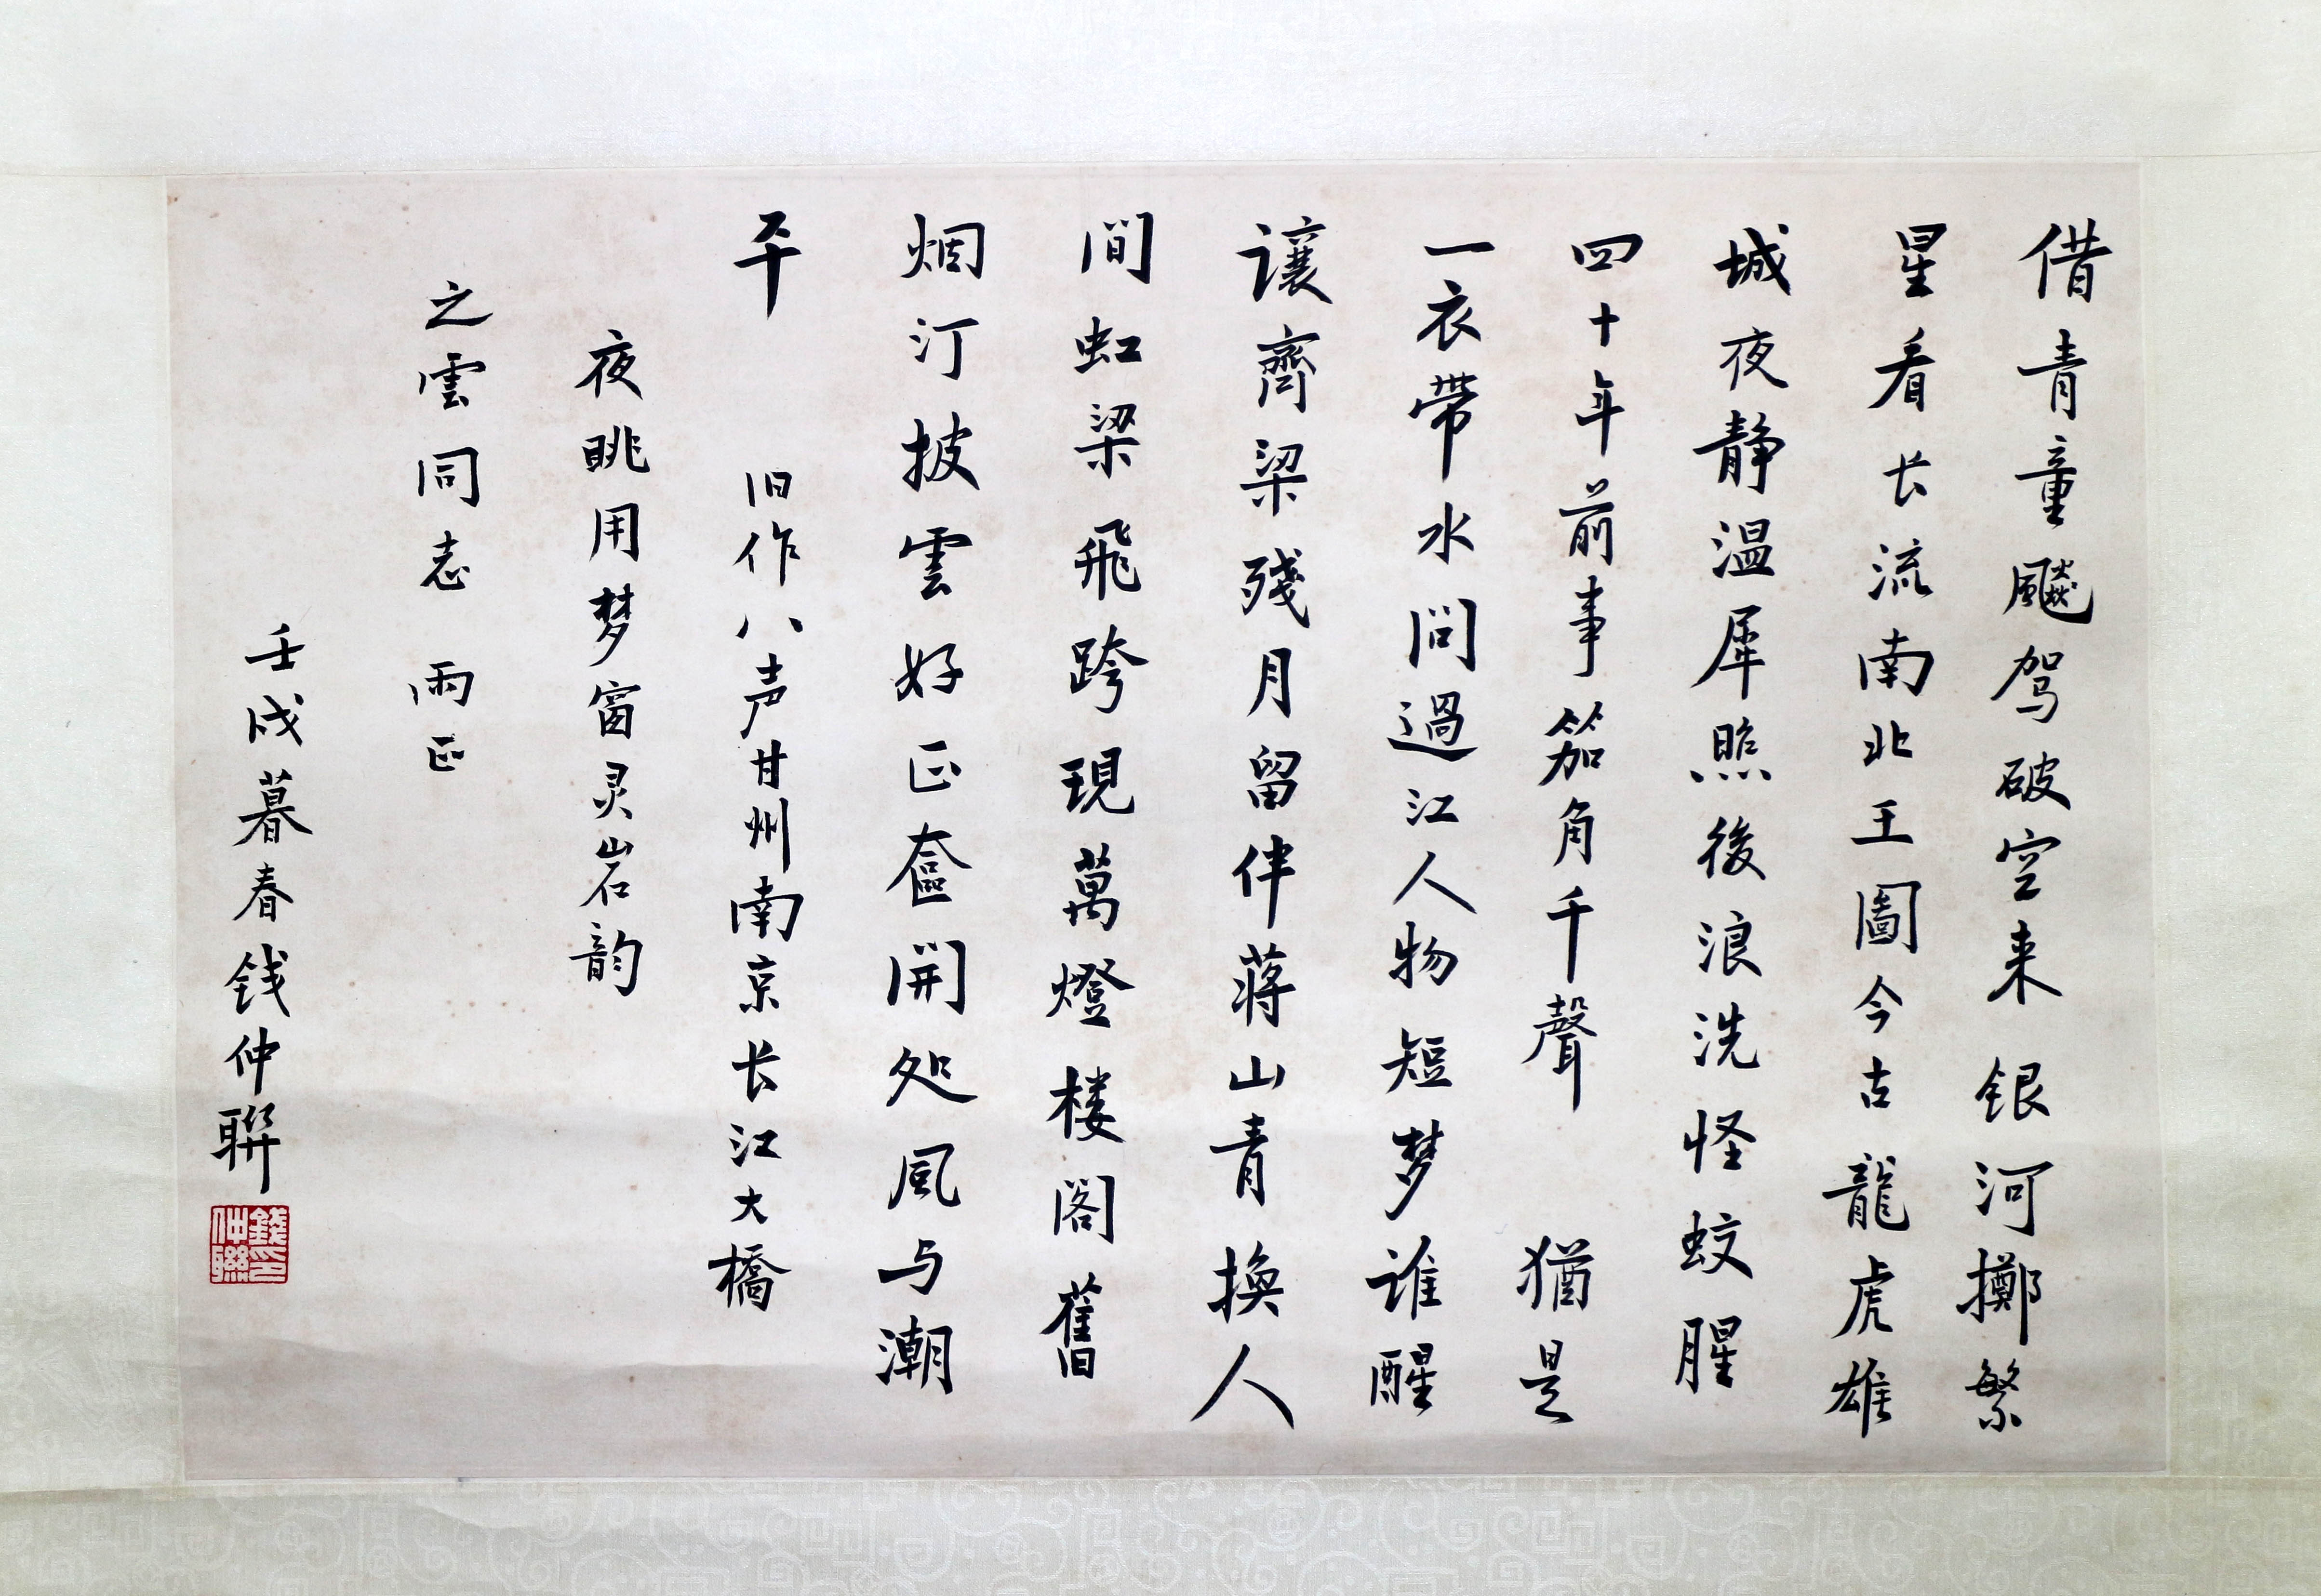 借青童飈驾破空来银河擲繁
星看长流南北王圖今古龍虎雄
城夜静温犀照後浪洗怪蛟腥
四十年前事笳角千聲猶是
一衣带水問過江人物短梦谁醒
讓齊梁殘月留伴蒋山青換人
間虹梁飛跨現萬燈楼阁舊
烟汀披雲好正奩開处風与潮
平旧作八声甘州南京长江大橋
夜眺用梦窗灵岩韵
之雲同志兩正
壬戌暮春钱仲聯
錢仲聯印